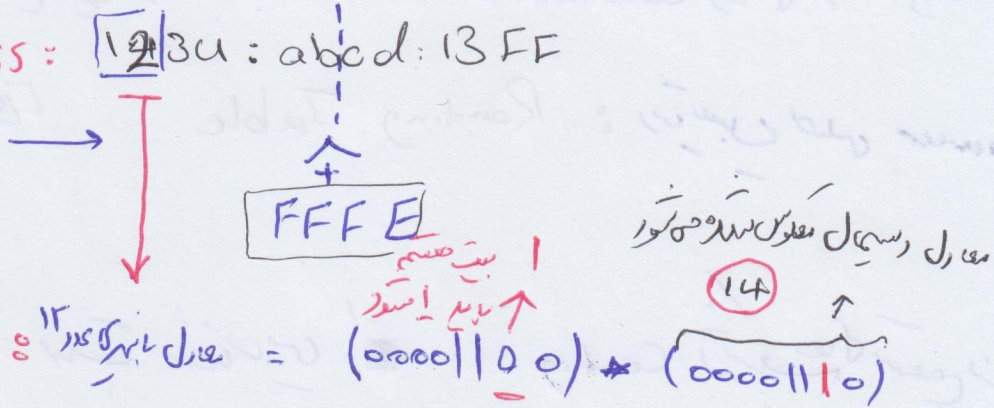 s: 1234 : abcd : 13FF
+
FFFE
بیت هفتم
باید 1 شود
1
معادل دسیمال معکوس شده می‌شود
14
: معادل باینری عدد ۱۲ = (00001100) * (00001110)